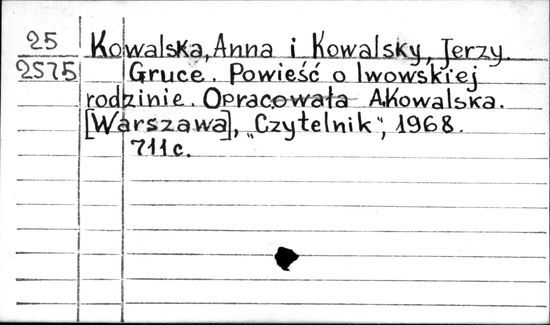 25
2575
Kowalska, Anna i Kowalsky, Jerzy.
Gruce. Powieść o lwowskiej
rodzinie. Opracowała A.Kowalska.
[Warszawa], „Czytelnik”, 1968.
711 c.